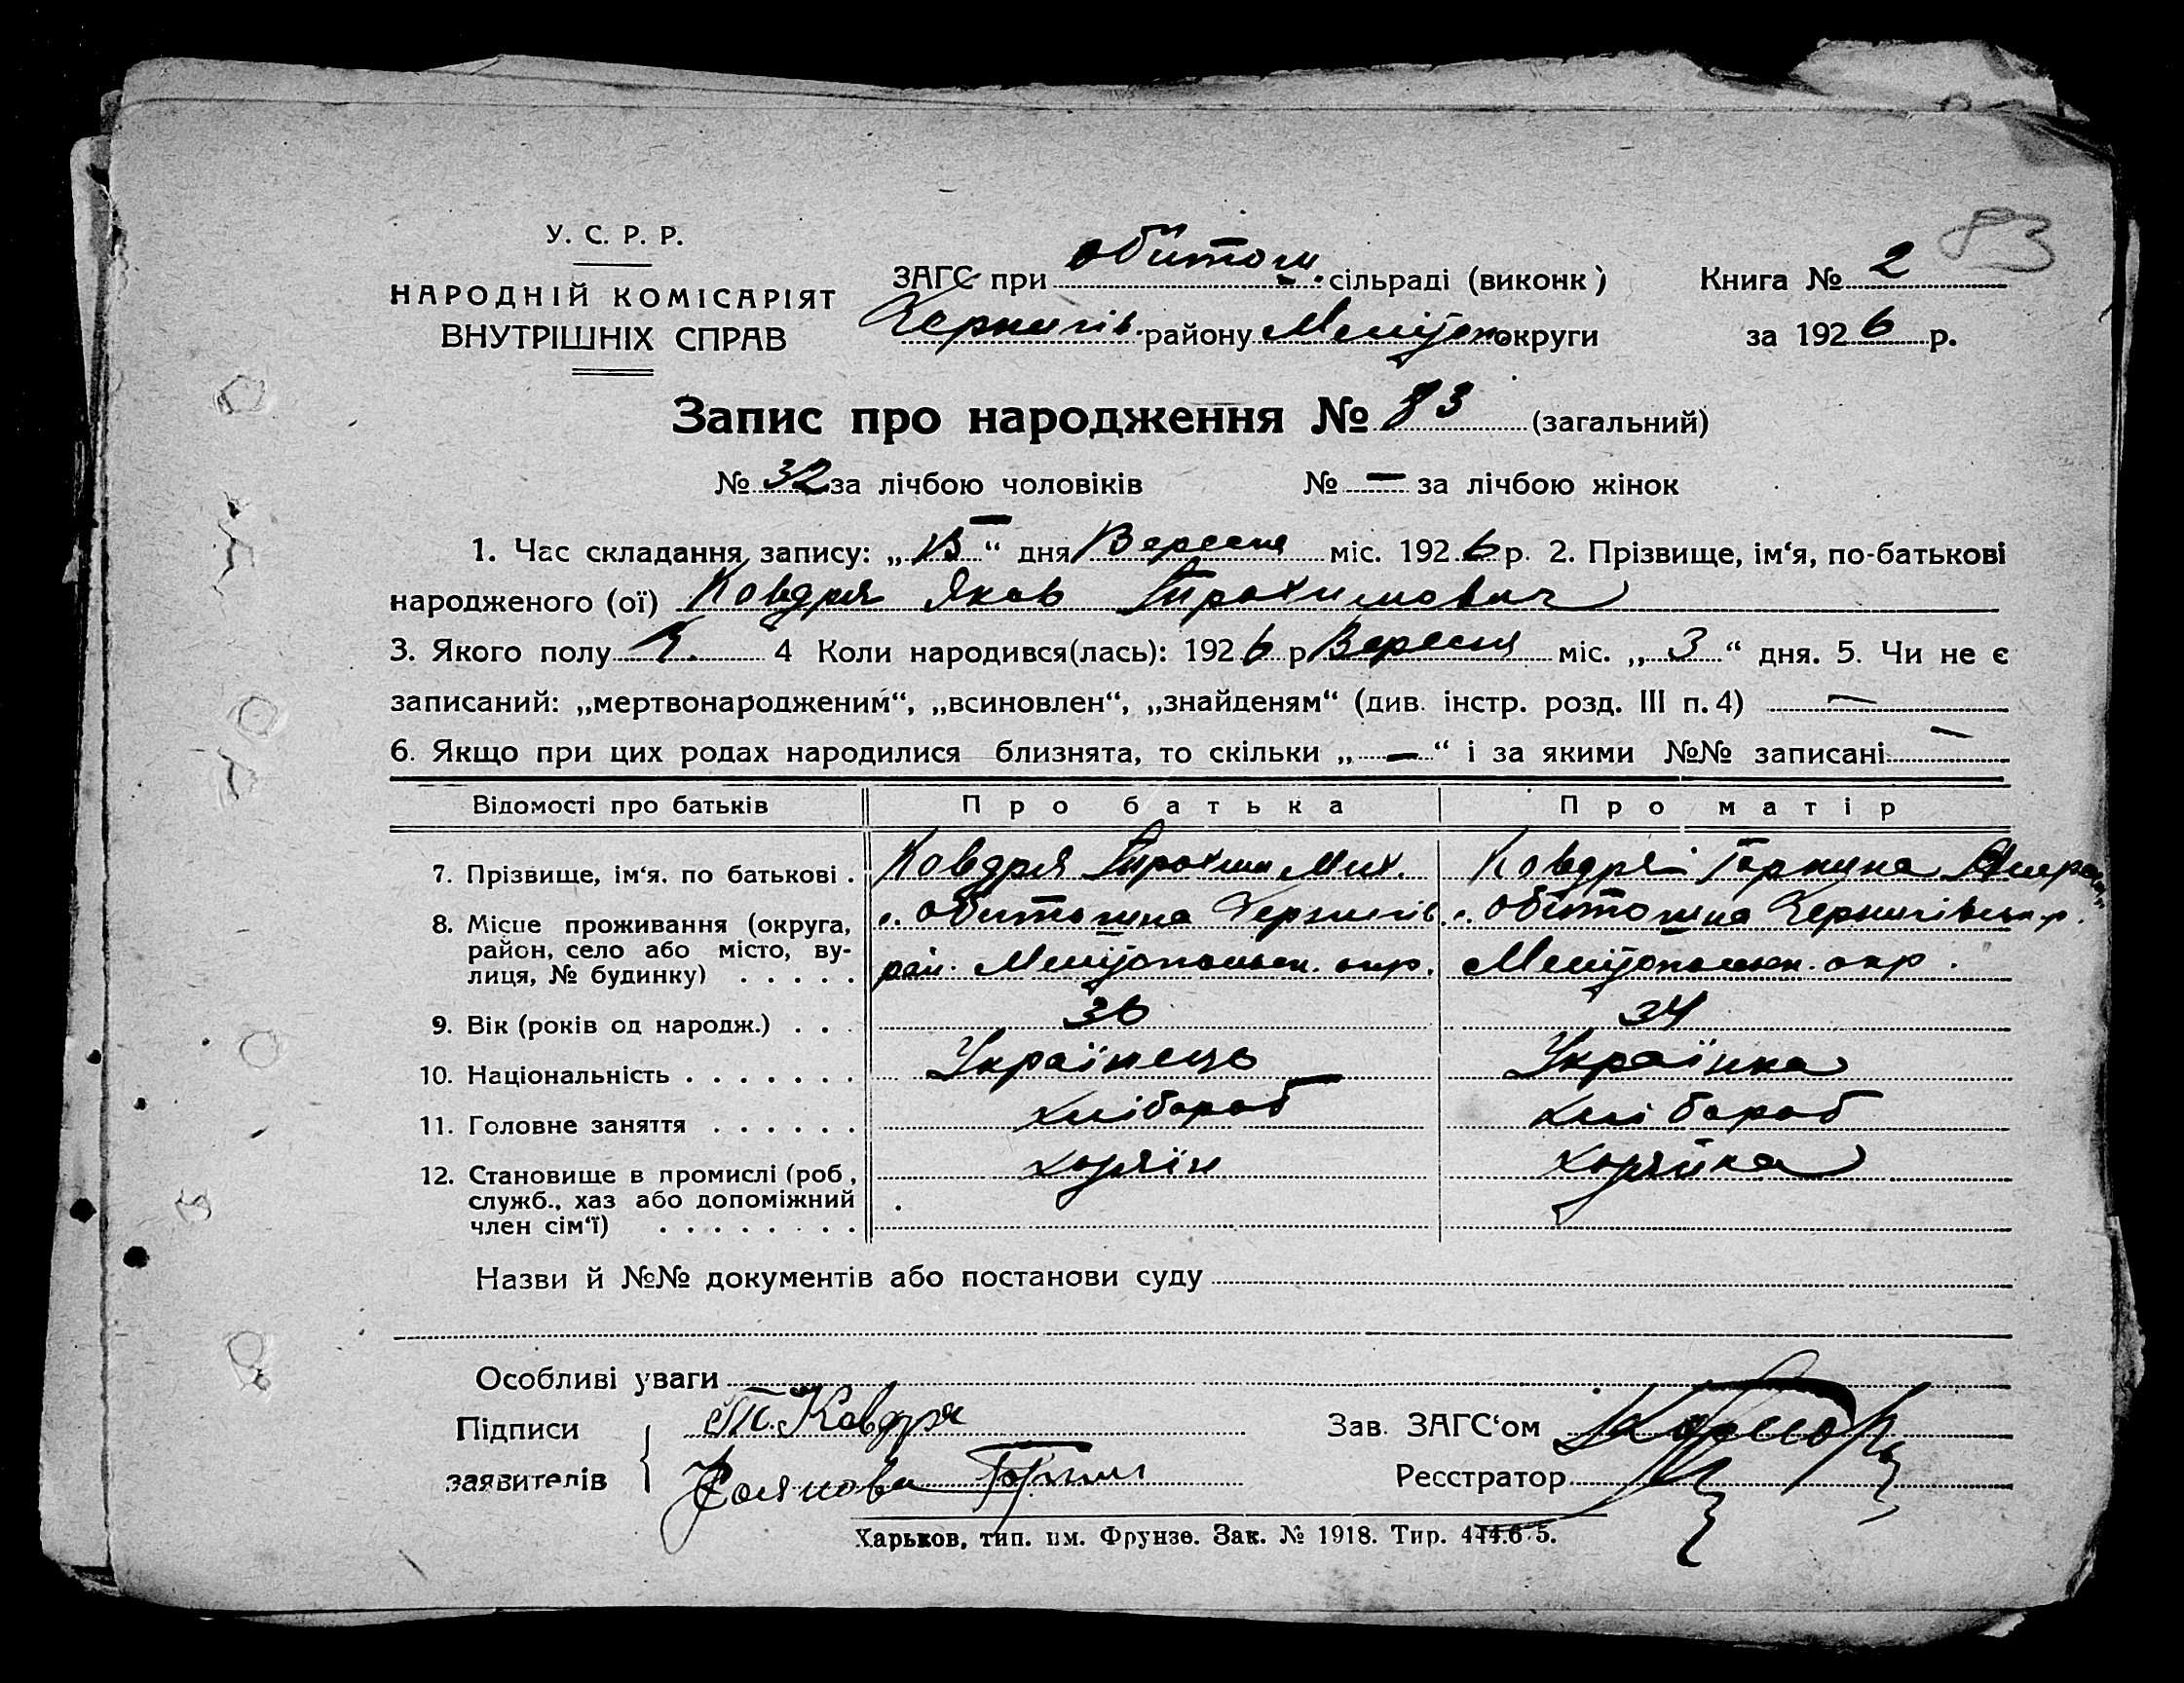 83
У. С. Р. Р.
НАРОДНІЙ КОМІСАРІЯТ
ВНУТРІШНІХ СПРАВ
ЗАГС при Обиточ. сільраді (виконк)
Чернигів. району Меліт. округи
Книга № 2
за 1926 р.
Запис про народження № 83 (загальний)
№ 32 за лічбою чоловіків № — за лічбою жінок
1. Час складання запису: „ “ дня Вересня міс. 1926 р. 2. Прізвище, ім‘я, по-батькові
народженого (ої) Ковдря Яков Трохимович
3. Якого полу Ч. 4 Коли народився(лась): 1926 р Вересня міс. „3“ дня. 5. Чи не є
записаний: „мертвонародженим“, „всиновлен“, „знайденям“ (див. інстр. розд. III п. 4) —
6. Якщо при цих родах народилися близнята, то скільки „—“ і за якими №№ записані —
Відомості про батьків Про батька Про матір
7. Прізвище, ім‘я, по батькові . Ковдря Трохим Мих. Ковдря Горпина
8. Місце проживання (округа, с. Обиточна Чернигів. с. Обиточна Чернигівськ р.
район, село або місто, ву-
лиця, № будинку) . . . . . рай. Мелітопольськ. окр. Мелітопольськ. окр.
9. Вік (років од народж.) . . . 36 34
10. Національність . . . . . . . Українець Українка
11. Головне заняття . . . . . . хлібороб хлібороб
12. Становище в промислі (роб., хозяїн хозяйка
служб., хаз або допоміжний
член сім‘ї) . . . . . . . .
Назви й №№ документів або постанови суду
Особливі уваги
Підписи Т. Ковдря Зав. ЗАГС‘ом
заявителів Реєстратор
Харьков, тип. им. Фрунзе. Зак. № 1918. Тир.